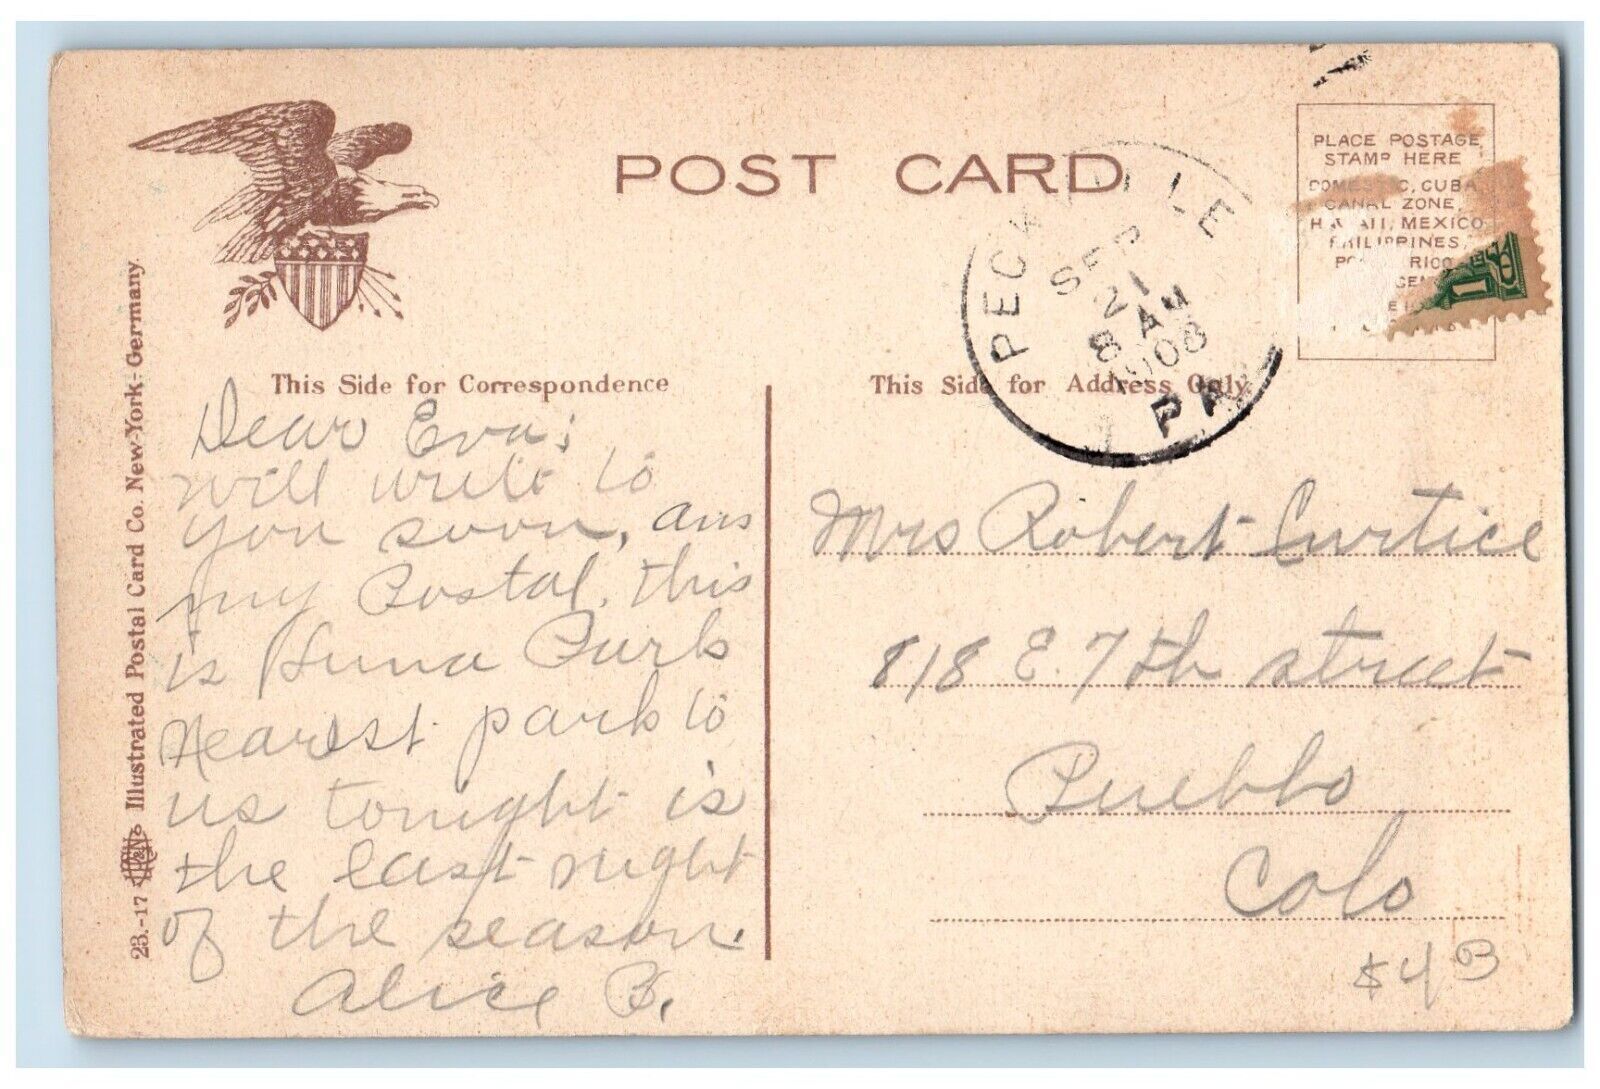 POST CARD
PLACE POSTAGE
STAMP HERE
DOMESTIC, CUBA
CANAL ZONE,
HAWAII, MEXICO
PHILIPPINES,
RICO
PECKVILLE
SEP
21
8 AM
1908
PA
This Side for Correspondence
This Side for Address Only
Dear Eva;
will write to
you soon, ans
my Postal, this
is Luna Park
nearest park to
us tonight is
the last night
of the season.
Alice B.
Mrs Robert Curtice
818 E. 7th street
Pueblo
Colo
$4 B
23.-17 Illustrated Postal Card Co. New-York-Germany.